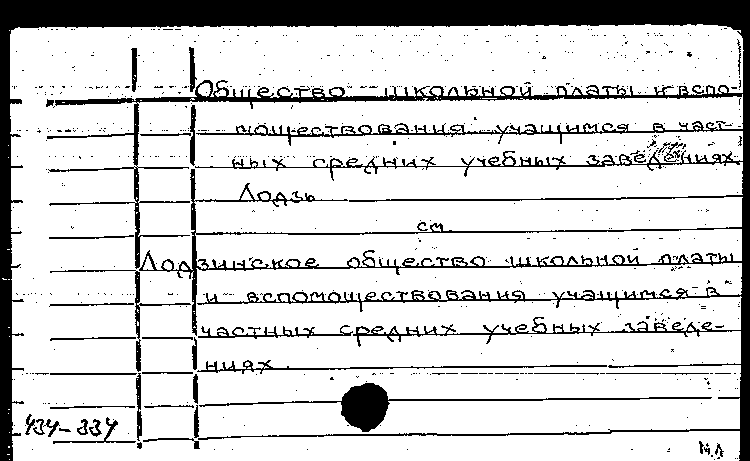 Общество школьной платы и вспо-
моществования учащимся в част-
ных средних учебных заведениях
Лодзь
см.
Лодзинское общество школьной платы
и вспомоществования учащимся в
частных средних учебных заведе-
ниях.
434-334